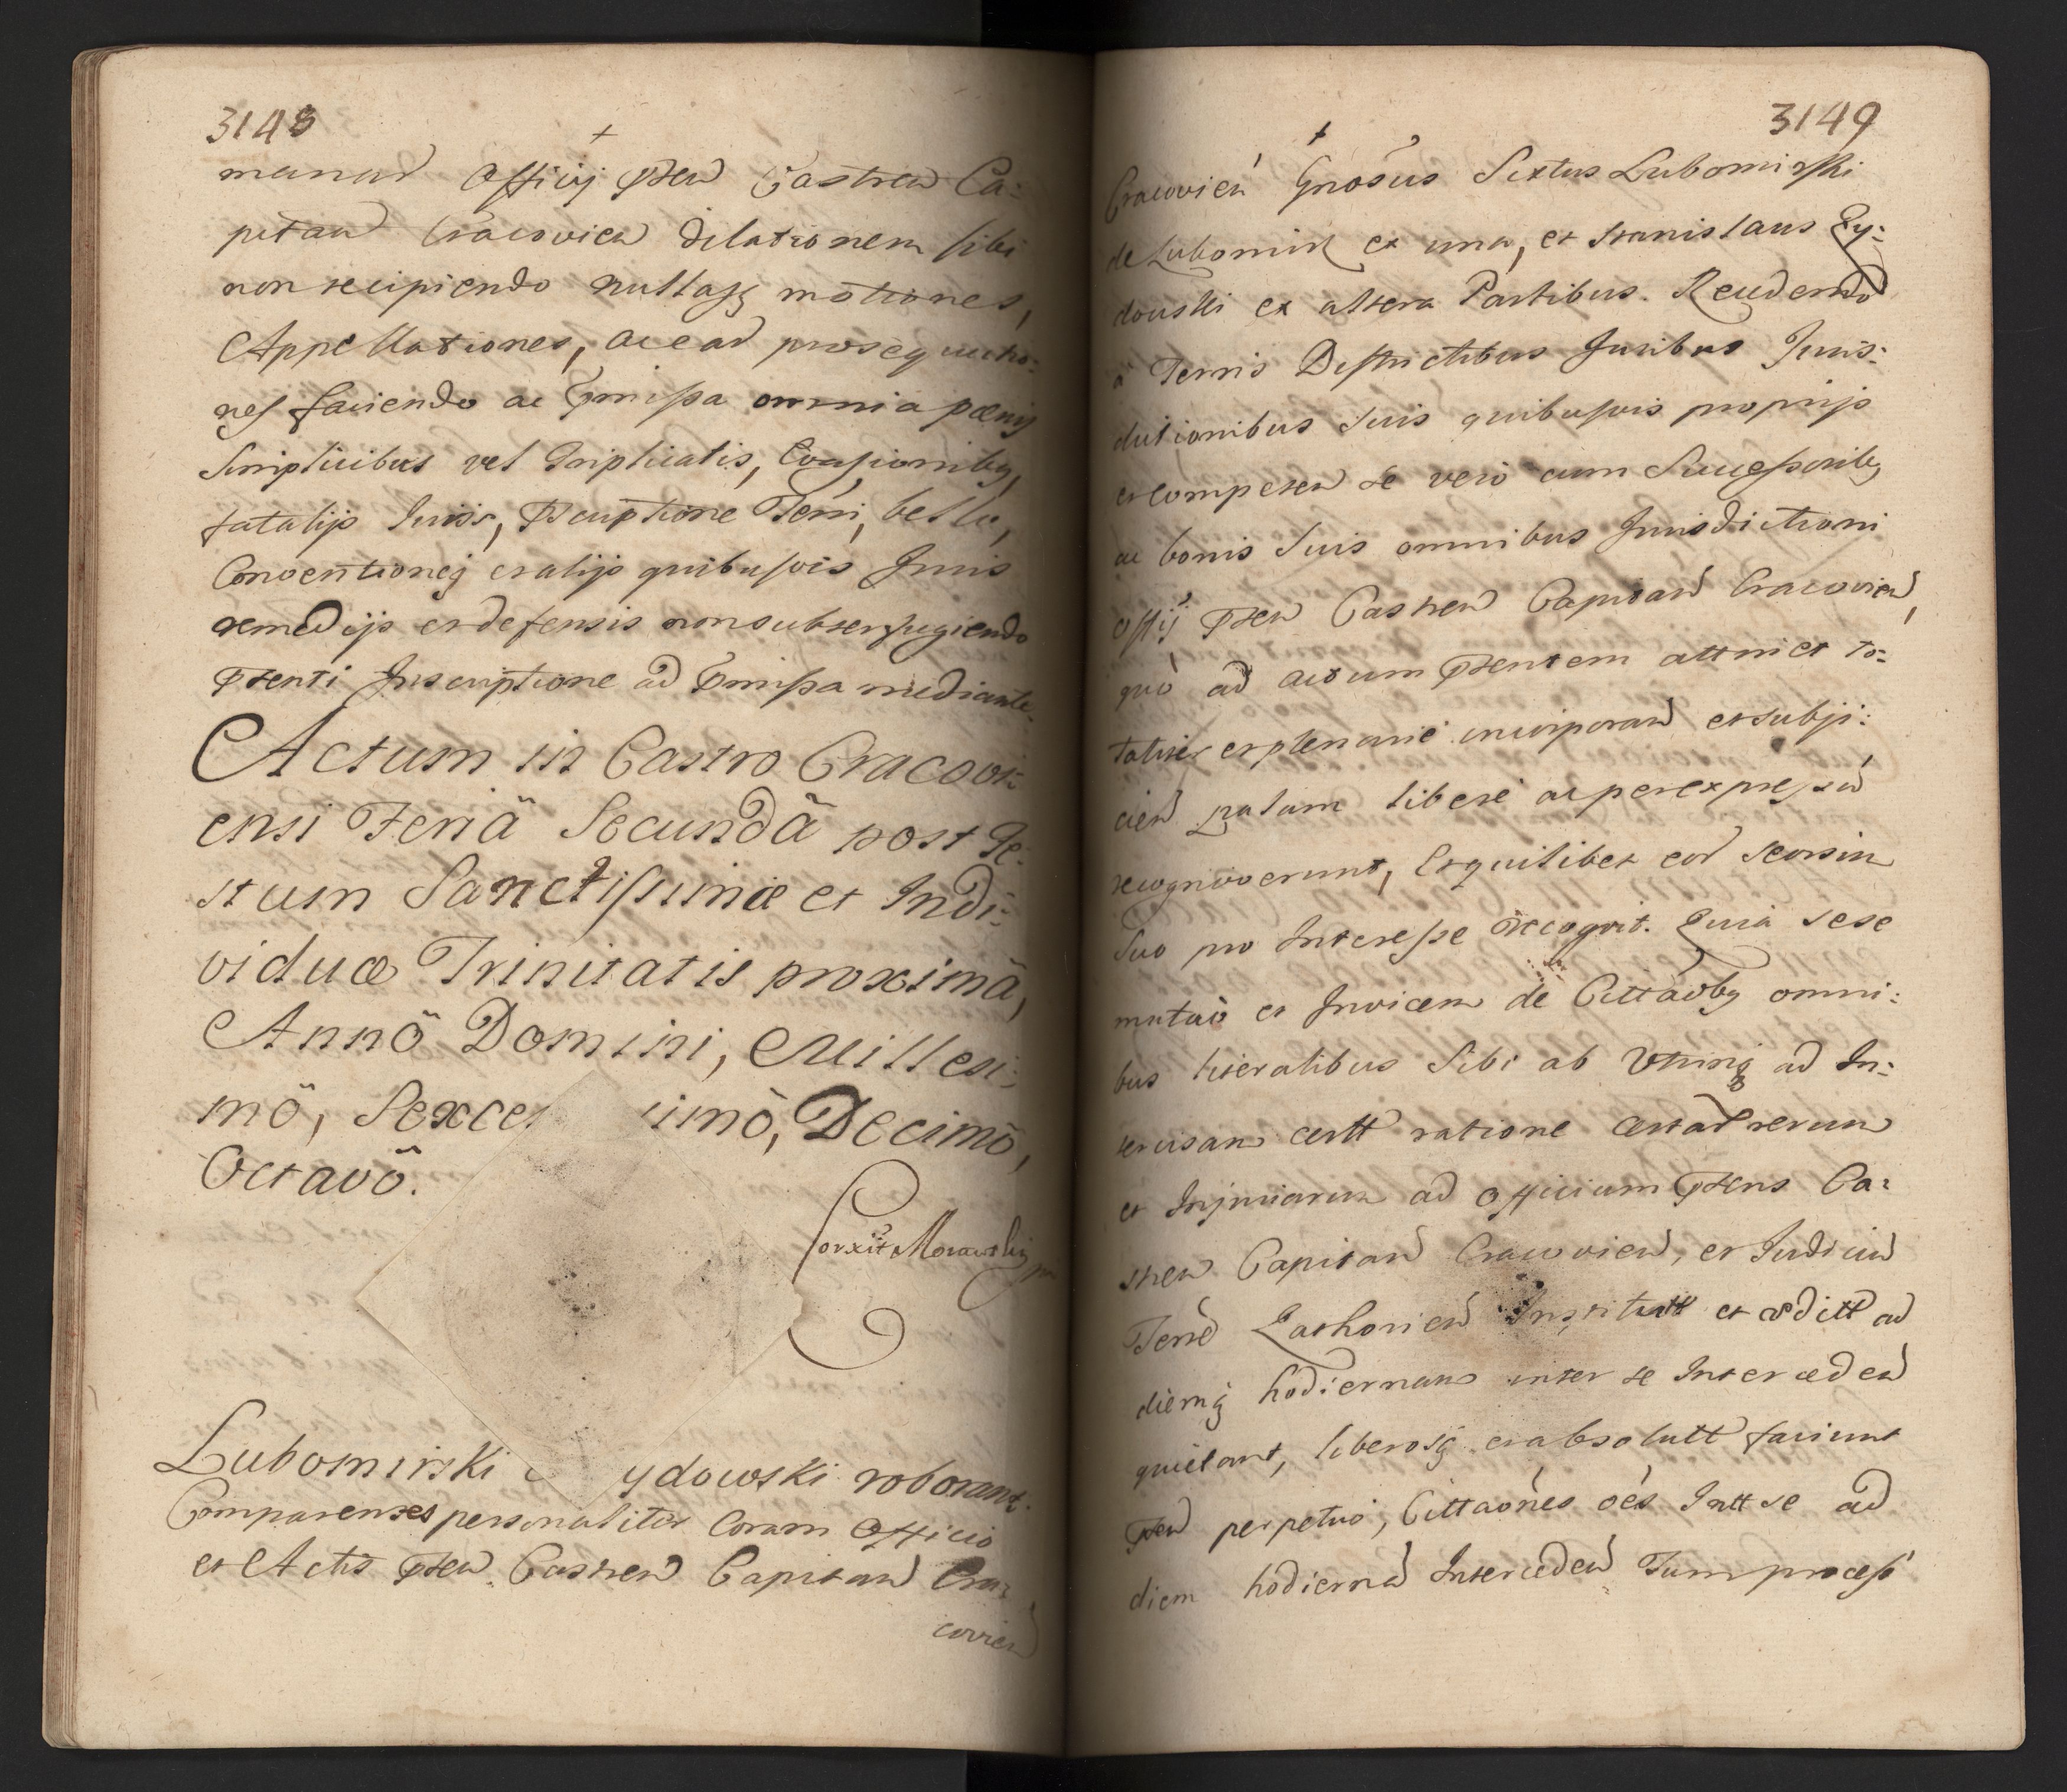 3148
manad Officij pnten Castren Ca:
pitan Cracovien dilationem sibi
non recipiendo nullasq motiones,
Appellationes, ac ad prosequutio:
nes faciendo ac pmissa omnia pænis
Simplicibus vel Triplicatis, Evasionibq,
fatalijs Juris, Pscriptione Terri, bello,
Conventioneq et alijs quibusvis Juris
remedijs et defensis non subterfugiendo
Pnti Inscriptione ad pmissa mediante.
Actum in Castro Cracovi:
ensi Feriâ Secundâ post Fe:
stum Sanctissimæ et Indi:
viduæ Trinitatis proximâ,
Annô Domini, Millesi:
mô, Sexcen imô, Decimô,
Octavô.
Corxit Morawskij
Lubomirski ydowski roborant.
Comparentes personaliter Coram Officio
et Actis pnten Castren Capitan Cra:
covien
3149
Cracovien Gnosus Sixtus Lubomirski
de Lubomirz ex una, et Stanislaus Ży:
dowski ex altera Partibus. Recedendo
a Terris Districtibus Juribus Juris:
dictionibus Suis quibusvis proprijs
et Competen se vero cum Successoribq
ac bonis Suis omnibus Jurisdictioni
Offij pnten Castren Capitan Cracovien,
quò ad actum pntem attinet to:
taliter et plenarie incorporan et subji:
cien palam libere ac per expressu
recognoverunt, Et quilibet eor seorsim
Suo pro Interesse recogvit. Quia sese
mutuò et Invicem de Cittaõbq omni:
bus literalibus Sibi ab Utrinq ad In:
teruisam certt ratione certar rerum
et Injuriarum ad officium pntens Ca:
stren Capitan Cracovien, et Judicium
Terrē Zathorien Institutt et ædditt ad
diemq hodiernam inter se Interceden
quietant, liberosq et absolutt faciunt
pnten perpetuò, Cittaones oes Intt se ad
diem hodiernā Interceden Tum process